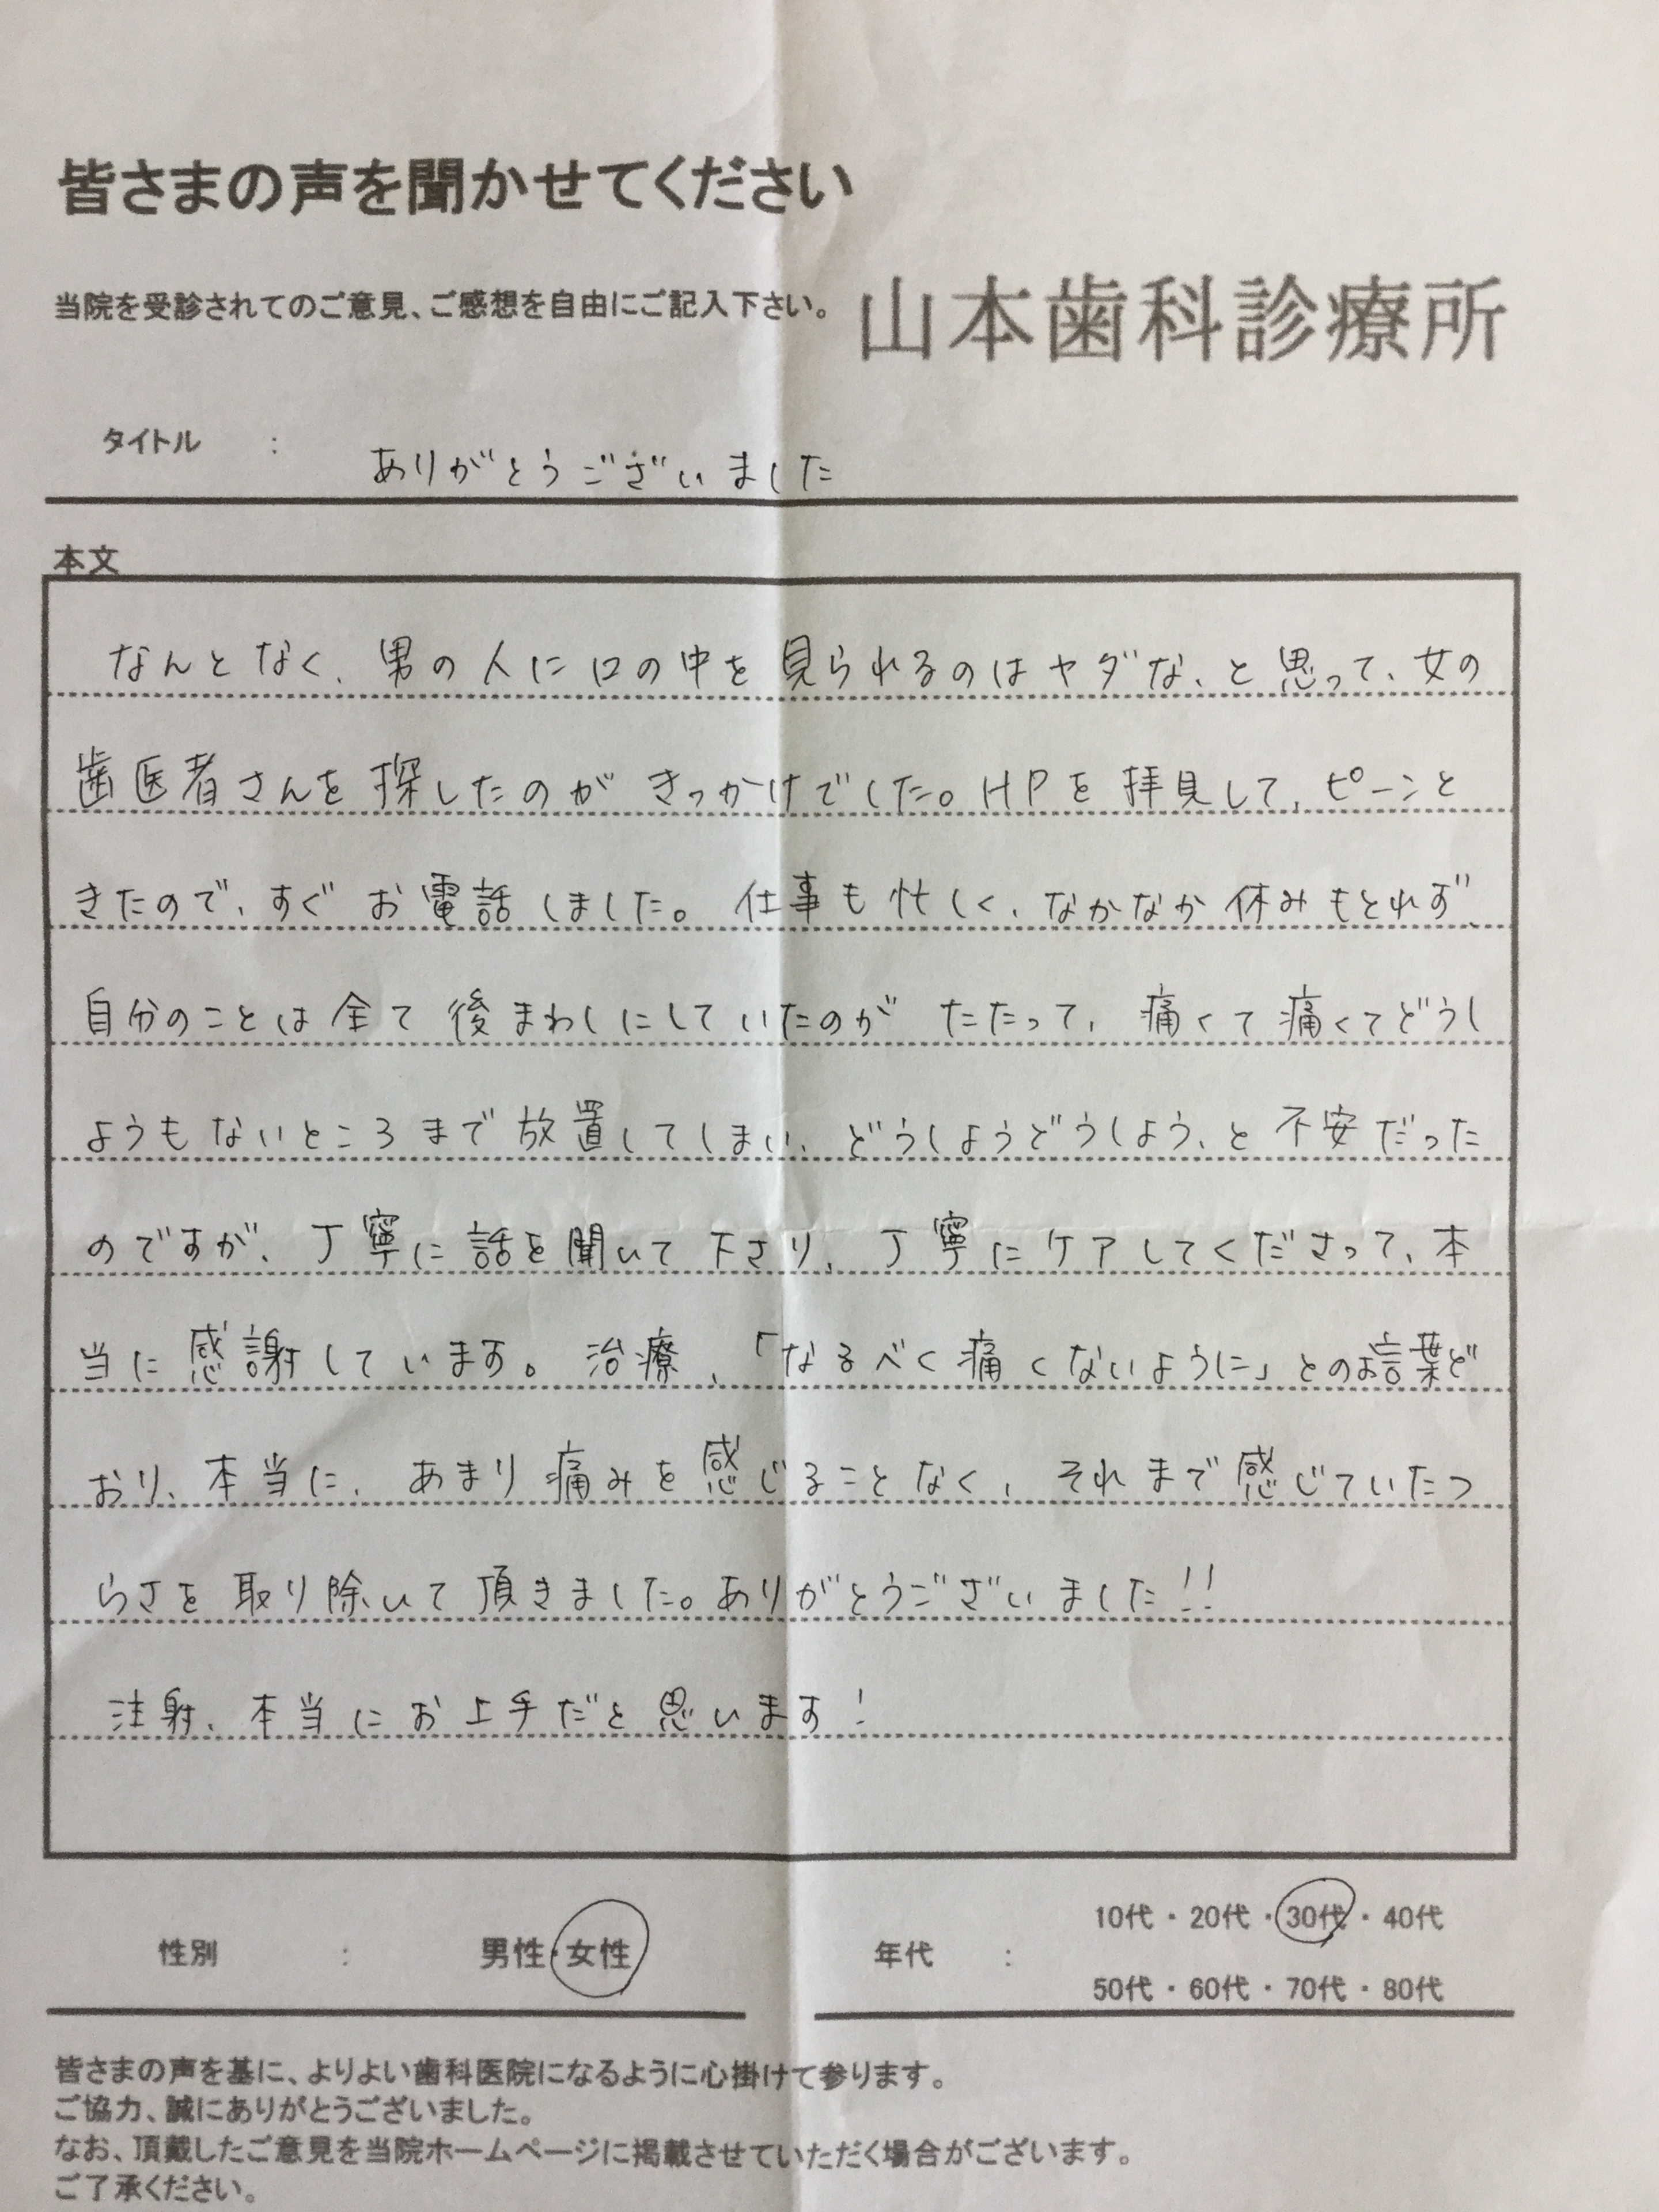 皆さまの声を聞かせてください
当院を受診されてのご意見、ご感想を自由にご記入下さい。
山本歯科診療所
タイトル : ありがとうございました
本文
なんとなく、男の人に口の中を見られるのはヤダな、と思って、女の
歯医者さんを探したのがきっかけでした。HPを拝見して、ピーンと
きたので、すぐお電話しました。仕事も忙しく、なかなか休みもとれず、
自分のことは全て後まわしにしていたのがたたって、痛くて痛くてどうし
ようもないところまで放置してしまい、どうしようどうしよう、と不安だった
のですが、丁寧に話を聞いて下さり、丁寧にケアしてくださって、本
当に感謝しています。治療、「なるべく痛くないように」とのお言葉ど
おり、本当に、あまり痛みを感じることなく、それまで感じていたつ
らさを取り除いて頂きました。ありがとうございました!!
注射、本当にお上手だと思います!
性別 : 男性・女性
年代 : 10代・20代・30代・40代
50代・60代・70代・80代
皆さまの声を基に、よりよい歯科医院になるように心掛けて参ります。
ご協力、誠にありがとうございました。
なお、頂戴したご意見を当院ホームページに掲載させていただく場合がございます。
ご了承ください。